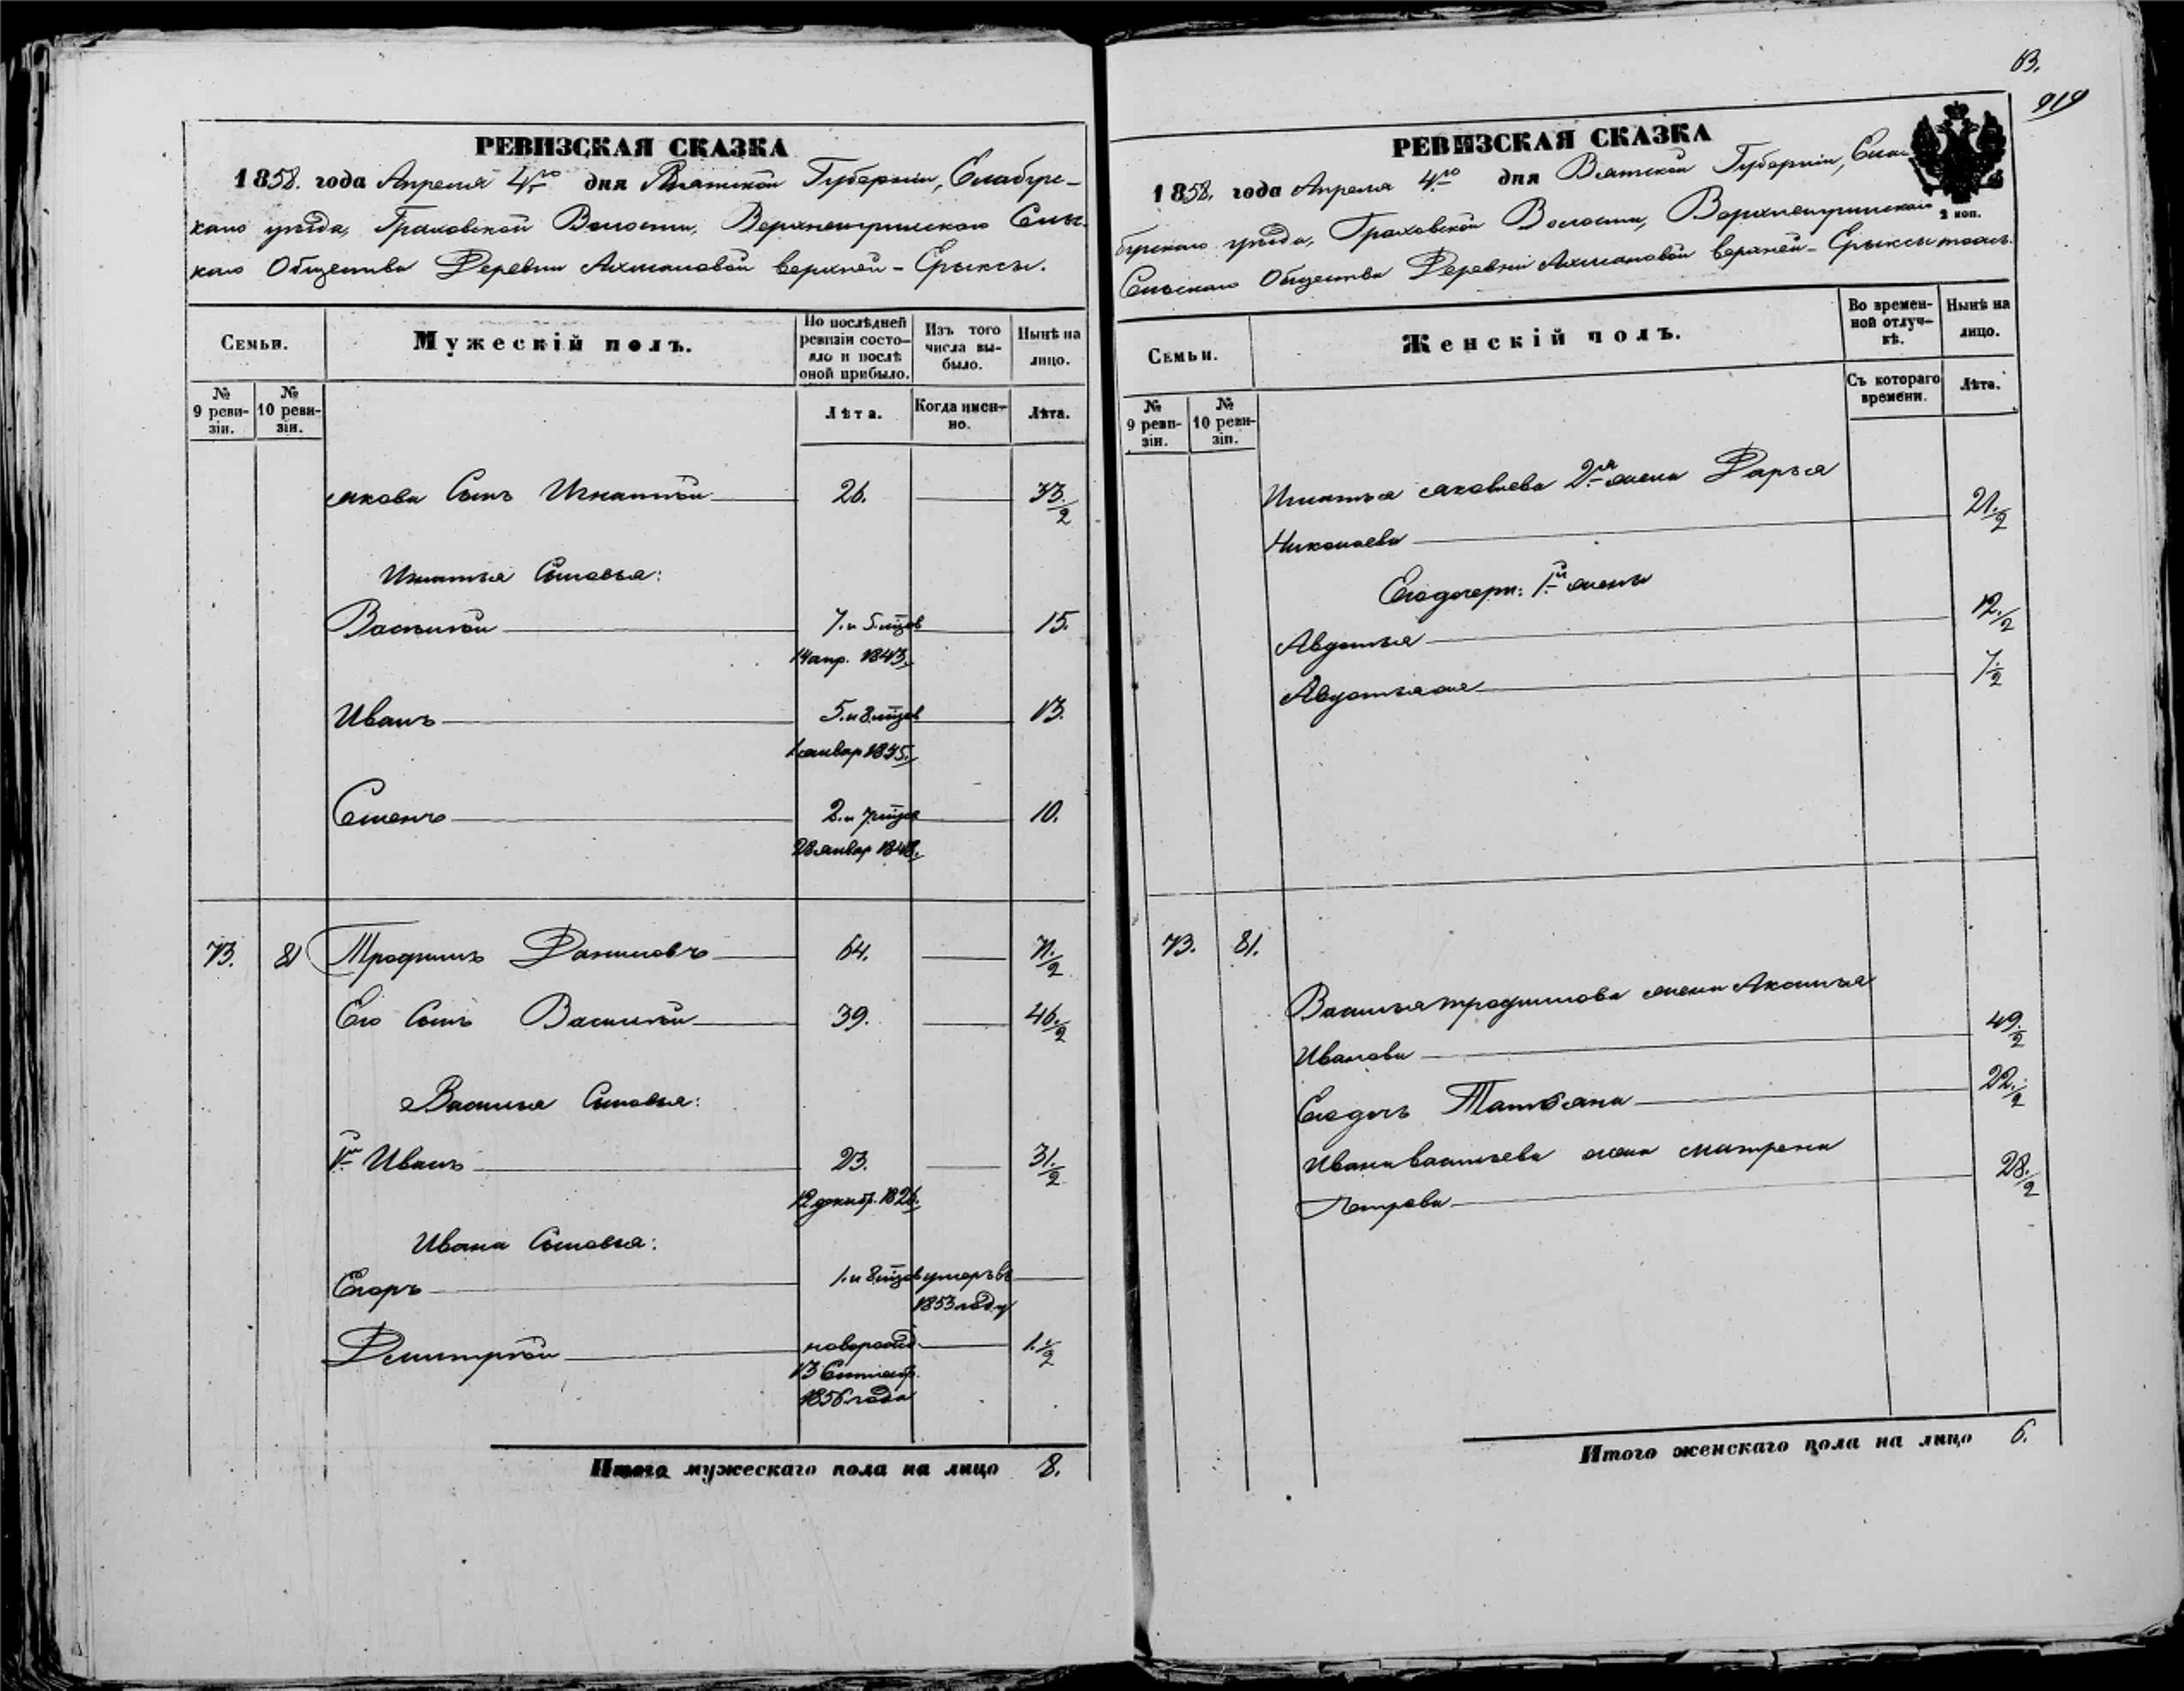 РЕВИЗСКАЯ СКАЗКА
1858. года Апреля 4го дня Вятской Губернии, Елабужс-
каго уѣзда, Граховской Волости, Верхнеигринскаго Сельс-
каго Общества Деревни Ахмановой верхней-Ерыксы.
Семьи.
Мужескій полъ.
По послѣдней ревизіи состояло и послѣ оной прибыло.
Изъ того числа выбыло.
Нынѣ на лицо.
№ 9 ревизіи.
№ 10 ревизіи.
Лѣта.
Когда именно.
Лѣта.
Якова Сынъ Игнатій 26. 33.½
Игнатья Сыновья:
Василій 7. и 5. мцов 15.
14 апр. 1843.
Иванъ 5. и 3. мцов 13.
1 январ 1845.
Семенъ 2. и 7 мцов 10.
28 январ 1848.
73. 81 Трофимъ Даниловъ 64. 71.½
Его Сынъ Василій 39. 46.½
Василья Сыновья:
1й Иванъ 23. 31.½
12 декабр. 1826.
Ивана Сыновья:
Егоръ 1. и 8 мцов умеръ въ
1853 году
Дмитрій новорожд. 1.½
13 Сентябр.
1856 года
Итого мужескаго пола на лицо 8.
13.
919
РЕВИЗСКАЯ СКАЗКА
2 коп.
1858. года Апреля 4го дня Вятской Губернии, Ела-
бужскаго уѣзда, Граховской Волости, Верхнеигринскаго
Сельскаго Общества Деревни Ахмановой верхней-Ерыксы
Семьи.
Женскій полъ.
Во временной отлучкѣ.
Нынѣ на лицо.
№ 9 ревизіи.
№ 10 ревизіи.
Съ котораго времени.
Лѣта.
Игнатья Яковлева 2я жена Дарья
Николаева 21.½
Его дочери: 1й жены
Авдотья 12.½
Авдотья же 7.½
73. 81.
Василья трофимова жена Акулина
Иванова 49.½
Его дочь Татьяна 22.½
Ивана васильева жена матрена
Петрова 28.½
Итого женскаго пола на лицо 6.